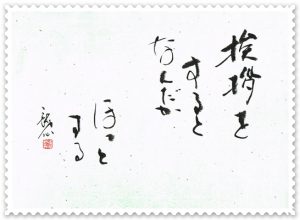 挨拶を
すると
なんだか
ほっと
する